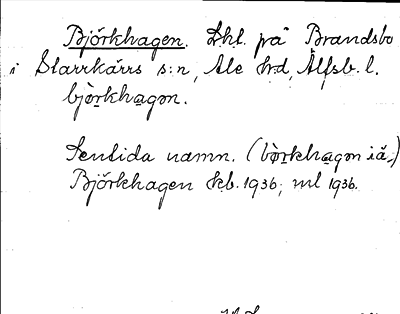 Björkhagen. Lhl. på Brandsbo
i Starrkärrs s:n, Ale hd, Älfsb. l.
bjò̤rkha̤gən.
Sentida namn. (bò̤rkha̤gən i ä,)
Björkhagen kb. 1936, ml 1936.